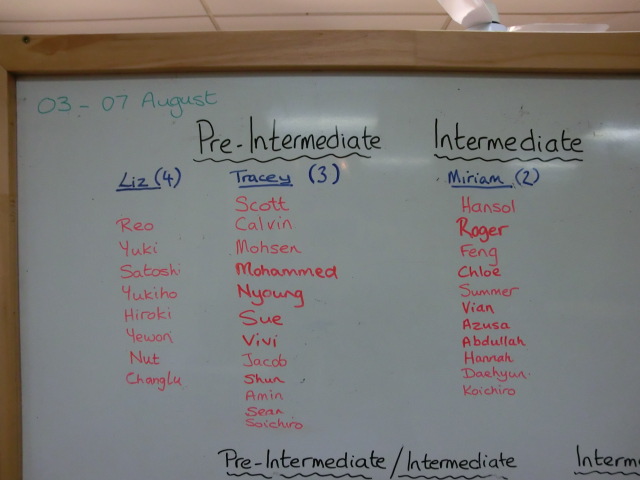 03 - 07 August
Pre-Intermediate
Intermediate
Liz (4)
Reo
Yuki
Satoshi
Yukiho
Hiroki
Yewon
Nut
Changlu
Tracey (3)
Scott
Calvin
Mohsen
Mohammed
Nyoung
Sue
Vivi
Jacob
Shun
Amin
Sean
Soichiro
Miriam (2)
Hansol
Roger
Feng
Chloe
Summer
Vian
Azusa
Abdullah
Hannah
Daehyun
Koichiro
Pre-Intermediate / Intermediate